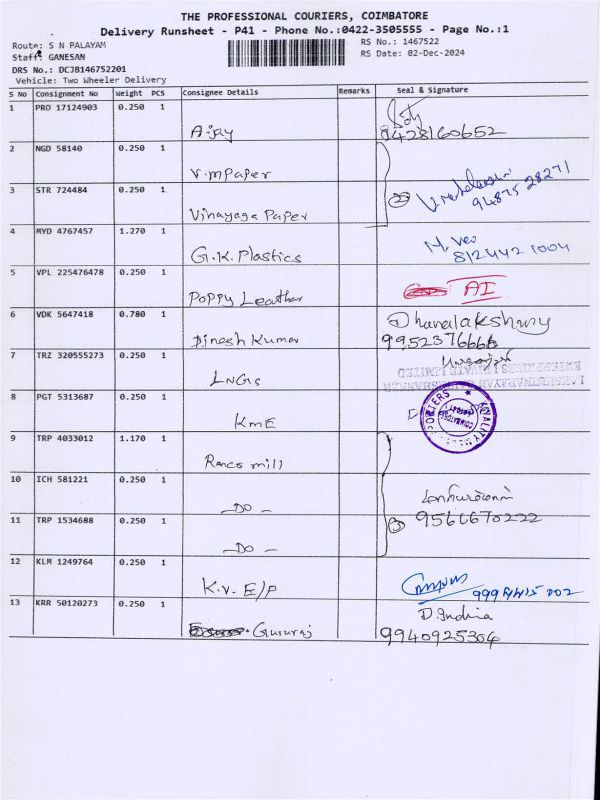 THE PROFESSIONAL COURIERS, COIMBATORE
Delivery Runsheet - P41 - Phone No.:0422-3505555 - Page No.:1
Route: S N PALAYAM
RS No.: 1467522
Staff: GANESAN
RS Date: 02-Dec-2024
DRS No.: DCJB146752201
Vehicle: Two Wheeler Delivery
S No Consignment No Weight PCS Consignee Details Remarks Seal & Signature
1 PRO 17124903 0.250 1 Ajay 9428160652
2 NGD 58140 0.250 1 V.M Paper
3 STR 724484 0.250 1 Vinayaga Paper 2 94875 28271
4 MYD 4767457 1.270 1 G.K. Plastics M. Vel 812442 1004
5 VPL 225476478 0.250 1 Poppy Leather AI
6 VDK 5647418 0.780 1 Dinesh Kumar Dhanalakshmy
9952376666
7 TRZ 320555273 0.250 1 LNGS
8 PGT 5313687 0.250 1 KME
9 TRP 4033012 1.170 1 Ranco mill
10 ICH 581221 0.250 1 - DO -
11 TRP 1534688 0.250 1 - DO - 3 9566670222
12 KLM 1249764 0.250 1 K.V. E/P
13 KRR 50120273 0.250 1 Gururaj D. Indira
9940925304